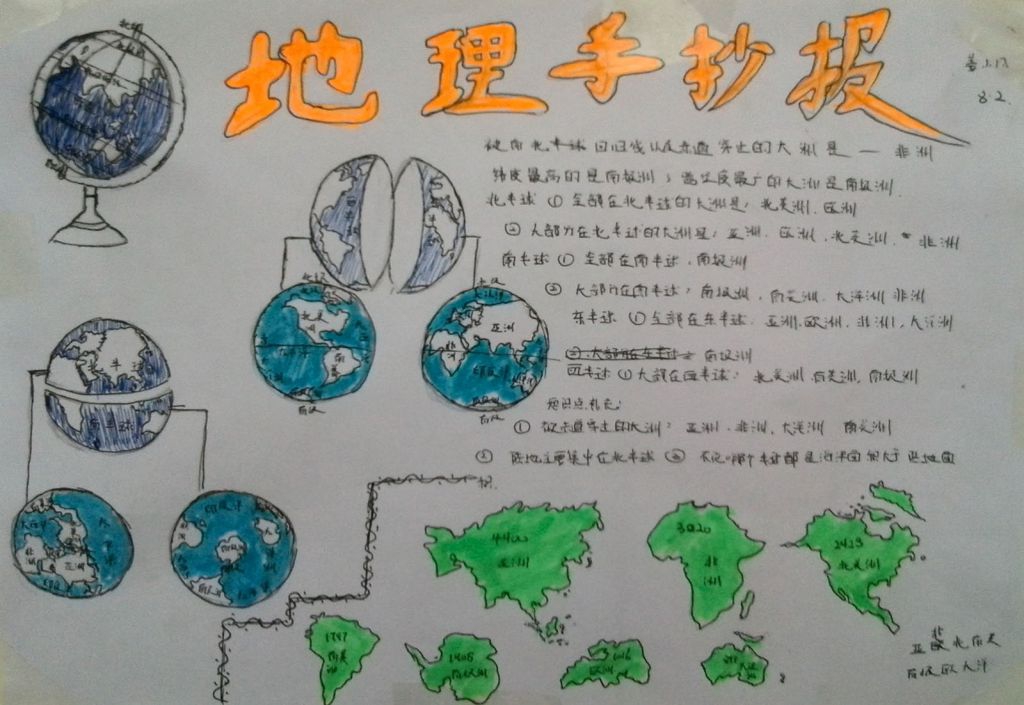 地理手抄报
8.2.
被南北半球回归线以及赤道穿过的大洲是 — 非洲
纬度最高的是南极洲；跨经度最广的大洲是南极洲.
北半球 ① 全部在北半球的大洲是：北美洲. 欧洲
② 大部分在北半球的大洲是：亚洲. 欧洲. 北美洲. 非洲
南半球 ① 全部在南半球：南极洲
② 大部分在南半球：南极洲. 南美洲. 大洋洲 非洲
东半球 ① 全部在东半球. 亚洲. 欧洲. 非洲. 大洋洲
② 大部分在东半球 南极洲
西半球 ① 大部在西半球：北美洲 南美洲. 南极洲
知识点补充：
① 被赤道穿过的大洲：亚洲. 非洲. 大洋洲 南美洲
② 陆地主要集中在北半球 ③ 不论哪个半球都是海洋面积大于陆地面
积.
西半球
北美洲
南美
亚洲
非洲
印度洋
北半球
南半球
大西洋
印度洋
4400
亚洲
3020
非洲
2423
北美洲
1797
南美洲
1400
南极洲
1016
欧洲
大洋洲
亚非北南美
南极欧大洋